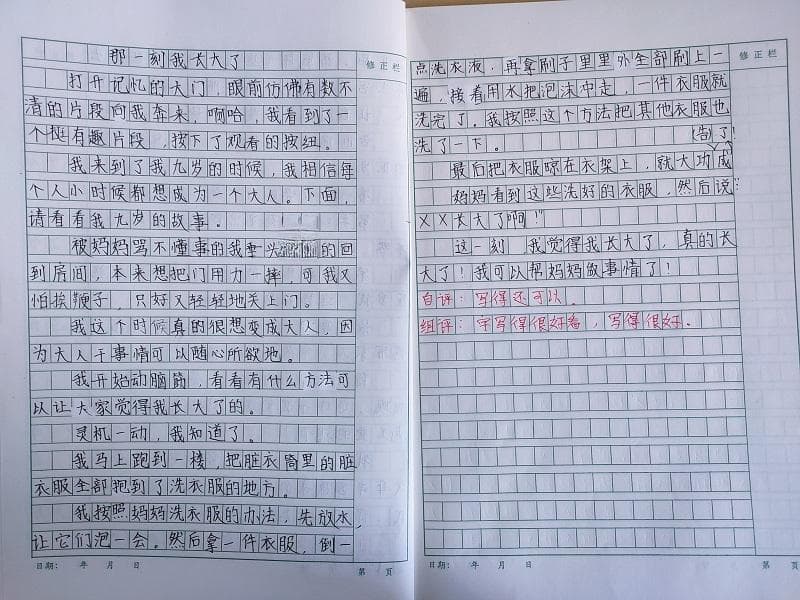 那一刻我长大了
修正栏
打开记忆的大门，眼前仿佛有数不
清的片段向我奔来，啊哈，我看到了一
个挺有趣片段，按下了观看的按纽。
我来到了我九岁的时候，我相信每
个人小时候都想成为一个大人。下面，
请看看我九岁的故事。
被妈妈骂不懂事的我垂头的回
到房间，本来想把门用力一摔，可我又
怕挨鞭子，只好又轻轻地关上门。
我这个时候真的很想变成大人，因
为大人干事情可以随心所欲地。
我开始动脑筋，看看有什么方法可
以让大家觉得我长大了的。
灵机一动，我知道了。
我马上跑到一楼，把脏衣筒里的脏
衣服全部抱到了洗衣服的地方。
我按照妈妈洗衣服的办法，先放水，
让它们泡一会。然后拿一件衣服，倒一
日期： 年 月 日
第 页
修正栏
点洗衣液，再拿刷子里里外全部刷上一
遍，接着用水把泡沫冲走，一件衣服就
洗完了。我按照这个方法把其他衣服也
洗了一下。
告了！
最后把衣服晾在衣架上，就大功成
妈妈看到这些洗好的衣服，然后说：
XX长大了啊！"
这一刻，我觉得我长大了，真的长
大了！我可以帮妈妈做事情了！
自评：写得还可以。
组评：字写得很好看，写得很好。
日期： 年 月 日
第 页